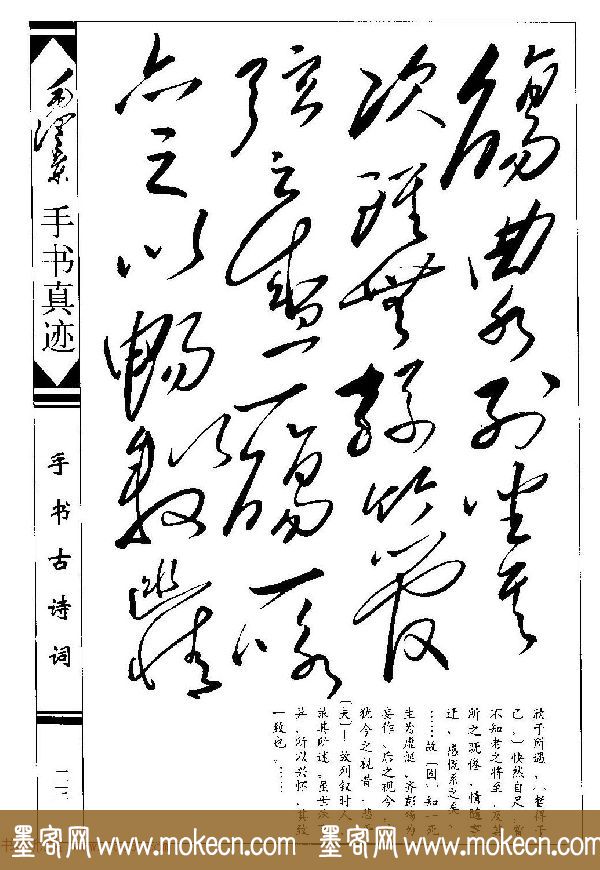 觴曲水列坐其
次雖無絲竹管
弦之盛一觴一詠
亦足以暢敘幽情
欣于所遇，（暂得于
己，）快然自足，曾
不知老之将至，及其
所之既倦，情随事
迁，感慨系之矣。
……故〔固〕知一死
生为虚诞，齐彭殇为
妄作，后之视今，
犹今之视昔，悲
〔夫〕！故列叙时人，
录其所述，虽世殊
异，所以兴怀，其致
一致也。……
毛泽东
手书真迹
手书古诗词
墨客网 www.mokecn.com 墨客网 www.mokecn.com